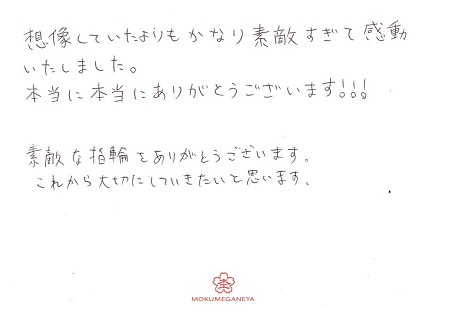 想像していたよりもかなり素敵すぎて感動
いたしました。
本当に本当にありがとうございます!!!
素敵な指輪をありがとうございます。
これから大切にしていきたいと思います。
MOKUMEGANEYA